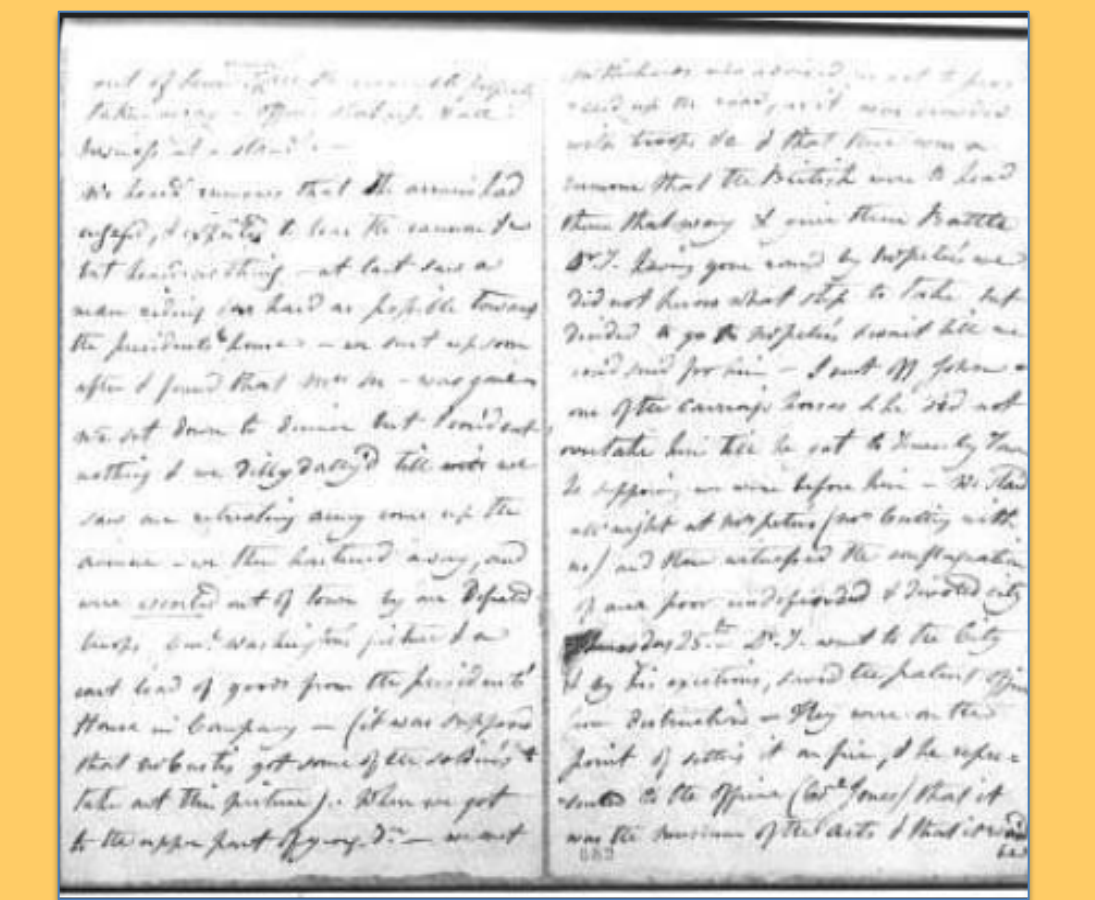 out of town the
taken away - offices shut up & all
business at a stand. -
We heard rumours that the armies had
engaged, & expected to hear the cannon &c
but heard nothing - at last saw a
man riding as hard as possible toward
the presidents house - we went up soon
after & found that Mrs M - was gone
we sat down to dinner but I could eat
nothing & we dilly dally'd till we
saw our retreating army come up the
avenue - we then hastened away, and
were escorted out of town by our Defeated
troops, Genl. Washingtons picture & a
cart load of goods from the presidents'
House in Company - (it was
that got some of the soldiers to
take out this picture). When we got
to the upper part of Geog. Tn. - we met
Mr Richards who advised us not to proceed
up the road, as it was crowded
with troops &c & that there was a
rumour that the British were to head
them that way & give them Battle
Dr. T. having gone round by Mrs peters's we
did not know what step to take, but
decided to go to Mrs peters's & wait till we
could send for him - I sent off John on
one of the carriage horses & he did not
overtake him till he got to Town
he supposing we were before him - We staid
all night at Mrs peters (Mrs Cutting with
us) and there witnessed the conflagration
of our poor undefended & devoted city
Thursday 25.th Dr. T. went to the City
& by his exertions, saved the patent office
from destruction - They were on the
point of setting it on fire, & he repre=
sented to the officer (Col Jones) that it
was the museum of the arts & that it would
682